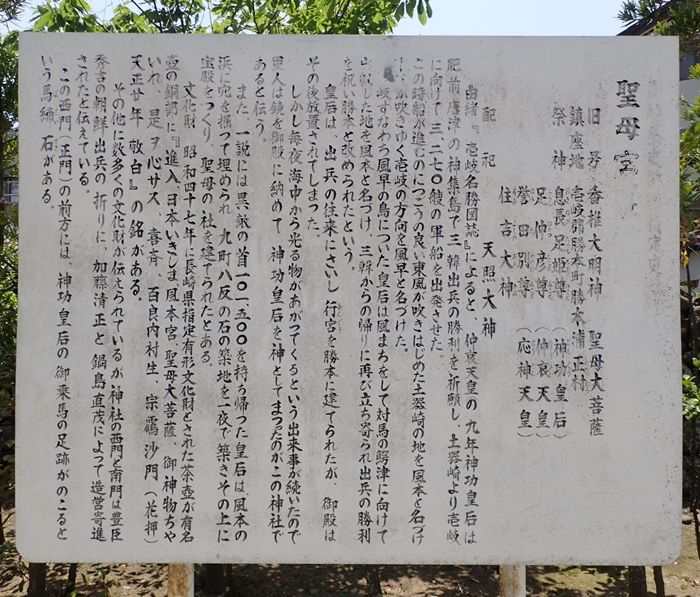 聖母宮
旧号 香椎大明神 聖母大菩薩
鎮座地 壱岐郡勝本町勝本浦正村
祭神 息長足姫尊(神功皇后)
足仲彦尊(仲哀天皇)
誉田別尊(応神天皇)
住吉大神
配祀 天照大神
由緒『壱岐名勝図誌』によると、仲哀天皇の九年神功皇后は
肥前唐津の神集島で三韓出兵の勝利を祈願し、土器崎より壱岐
に向けて三、二七〇艘の軍船を出発させた。
この時船が進むのにつごうの良い東風が吹きはじめた土器崎の地を風本と名づけ
が吹きゆく壱岐の方向を風早と名づけた。
岐すなわち風早の島についた皇后は風まちをして対馬の鰐津に向けて
出帆した地を風本と名づけ、三韓からの帰りに再び立ち寄られ出兵の勝利
を祝い勝本と改められたという。
皇后は、出兵の往来にさいし行宮を勝本に建てられたが、御殿は
その後放置されてしまった。
しかし毎夜海中から光る物があがってくるという出来事が続いたので
里人は鏡を御殿に納めて、神功皇后を神としてまつたのがこの神社で
あると伝う。
また、一説には異敵の首一〇一、五〇〇を持ち帰った皇后は風本の
浜に穴を掘って埋められ、九町八反の石の築地を一夜で築きその上に
宝殿をつくり、聖母の社を建てられたとある。
文化財 昭和四十七年に長崎県指定有形文化財とされた茶壺が有名
壺の銅部に『進入、日本いきしま風本宮、聖母大菩薩、御神物ちや
いれ、是ヲ心サス、喜斉、百良内村生、宗靏沙門(花押)
天正廿年 敬白』の銘がある。
その他に数多くの文化財が伝えられているが神社の西門と南門は豊臣
秀吉の朝鮮出兵の折りに、加藤清正と鍋島直茂によって造営寄進
されたと伝えている。
この西門(正門)の前方には、神功皇后の御乗馬の足跡がのこると
いう馬蹄石がある。